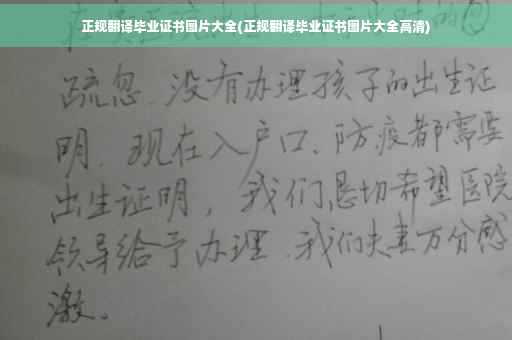 正规翻译毕业证书图片大全(正规翻译毕业证书图片大全高清)
疏忽、没有办理孩子的出生证
明、现在入户口、防疫都需要
出生证明，我们恳切希望医院
领导给予办理、我们夫妻万分感
激。